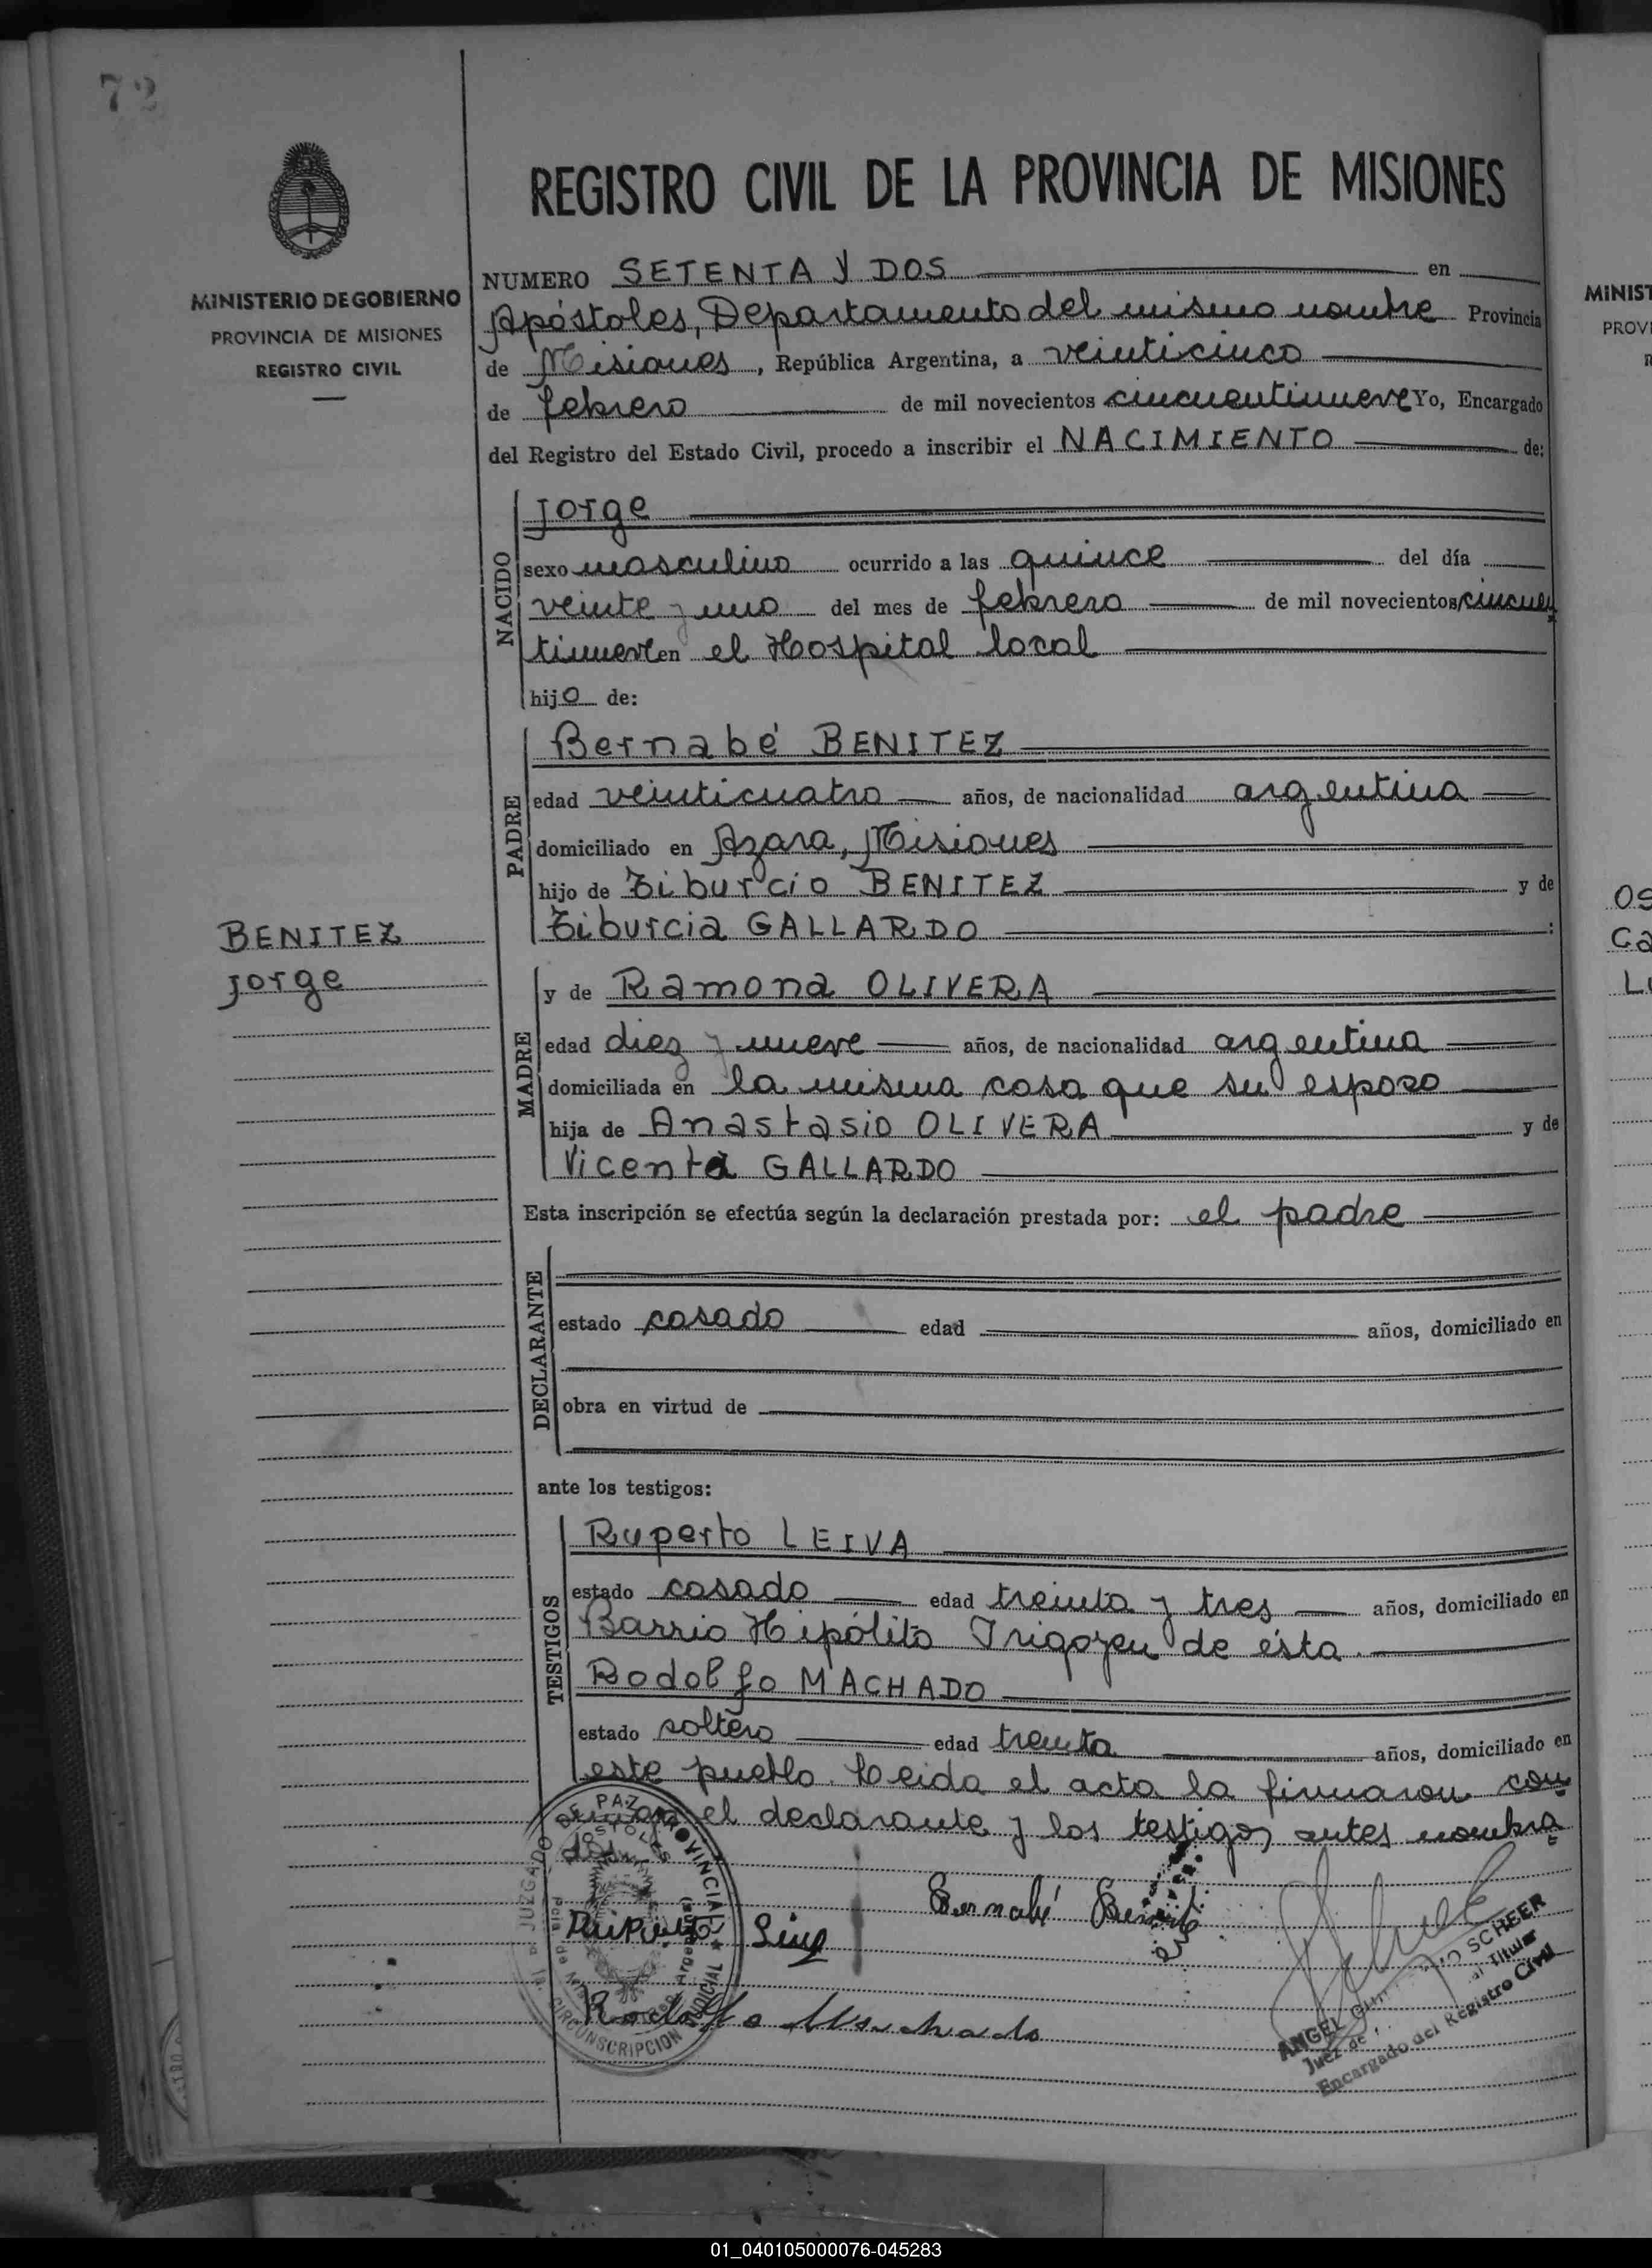 72
MINISTERIO DE GOBIERNO
PROVINCIA DE MISIONES
REGISTRO CIVIL
BENITEZ
Jorge
REGISTRO CIVIL DE LA PROVINCIA DE MISIONES
NUMERO SETENTA Y DOS en
Apóstoles, Departamento del mismo nombre Provincia
de Misiones, República Argentina, a veinticinco
de febrero de mil novecientos cincuentinueve Yo, Encargado
del Registro del Estado Civil, procedo a inscribir el NACIMIENTO de:
NACIDO
Jorge
sexo masculino ocurrido a las quince del día
veinte y uno del mes de febrero de mil novecientos cincuen
tinueve en el Hospital local
hijo de:
PADRE
Bernabé BENITEZ
edad veinticuatro años, de nacionalidad argentina
domiciliado en Azara, Misiones
hijo de Tiburcio BENITEZ y de
Tiburcia GALLARDO :
MADRE
y de Ramona OLIVERA
edad diez y nueve años, de nacionalidad argentina
domiciliada en la misma casa que su esposo
hija de Anastasio OLIVERA y de
Vicenta GALLARDO
Esta inscripción se efectúa según la declaración prestada por: el padre
DECLARANTE
estado casado edad años, domiciliado en
obra en virtud de
ante los testigos:
TESTIGOS
Ruperto LEIVA
estado casado edad treinta y tres años, domiciliado en
Barrio Hipólito Irigoyen de ésta.
Rodolfo MACHADO
estado soltero edad treinta años, domiciliado en
este pueblo. Leida el acta la firmaron con
el declarante y los testigos antes nombra
dos
JUZGADO DE PAZ
APOSTOLES
PROVINCIA
CIRCUNSCRIPCION JUDICIAL
Bernabé
Rodolfo Machado
ANGEL SCHEER
Juez de Titular
Encargado del Registro Civil
MINIST
PROVI
01_040105000076-045283